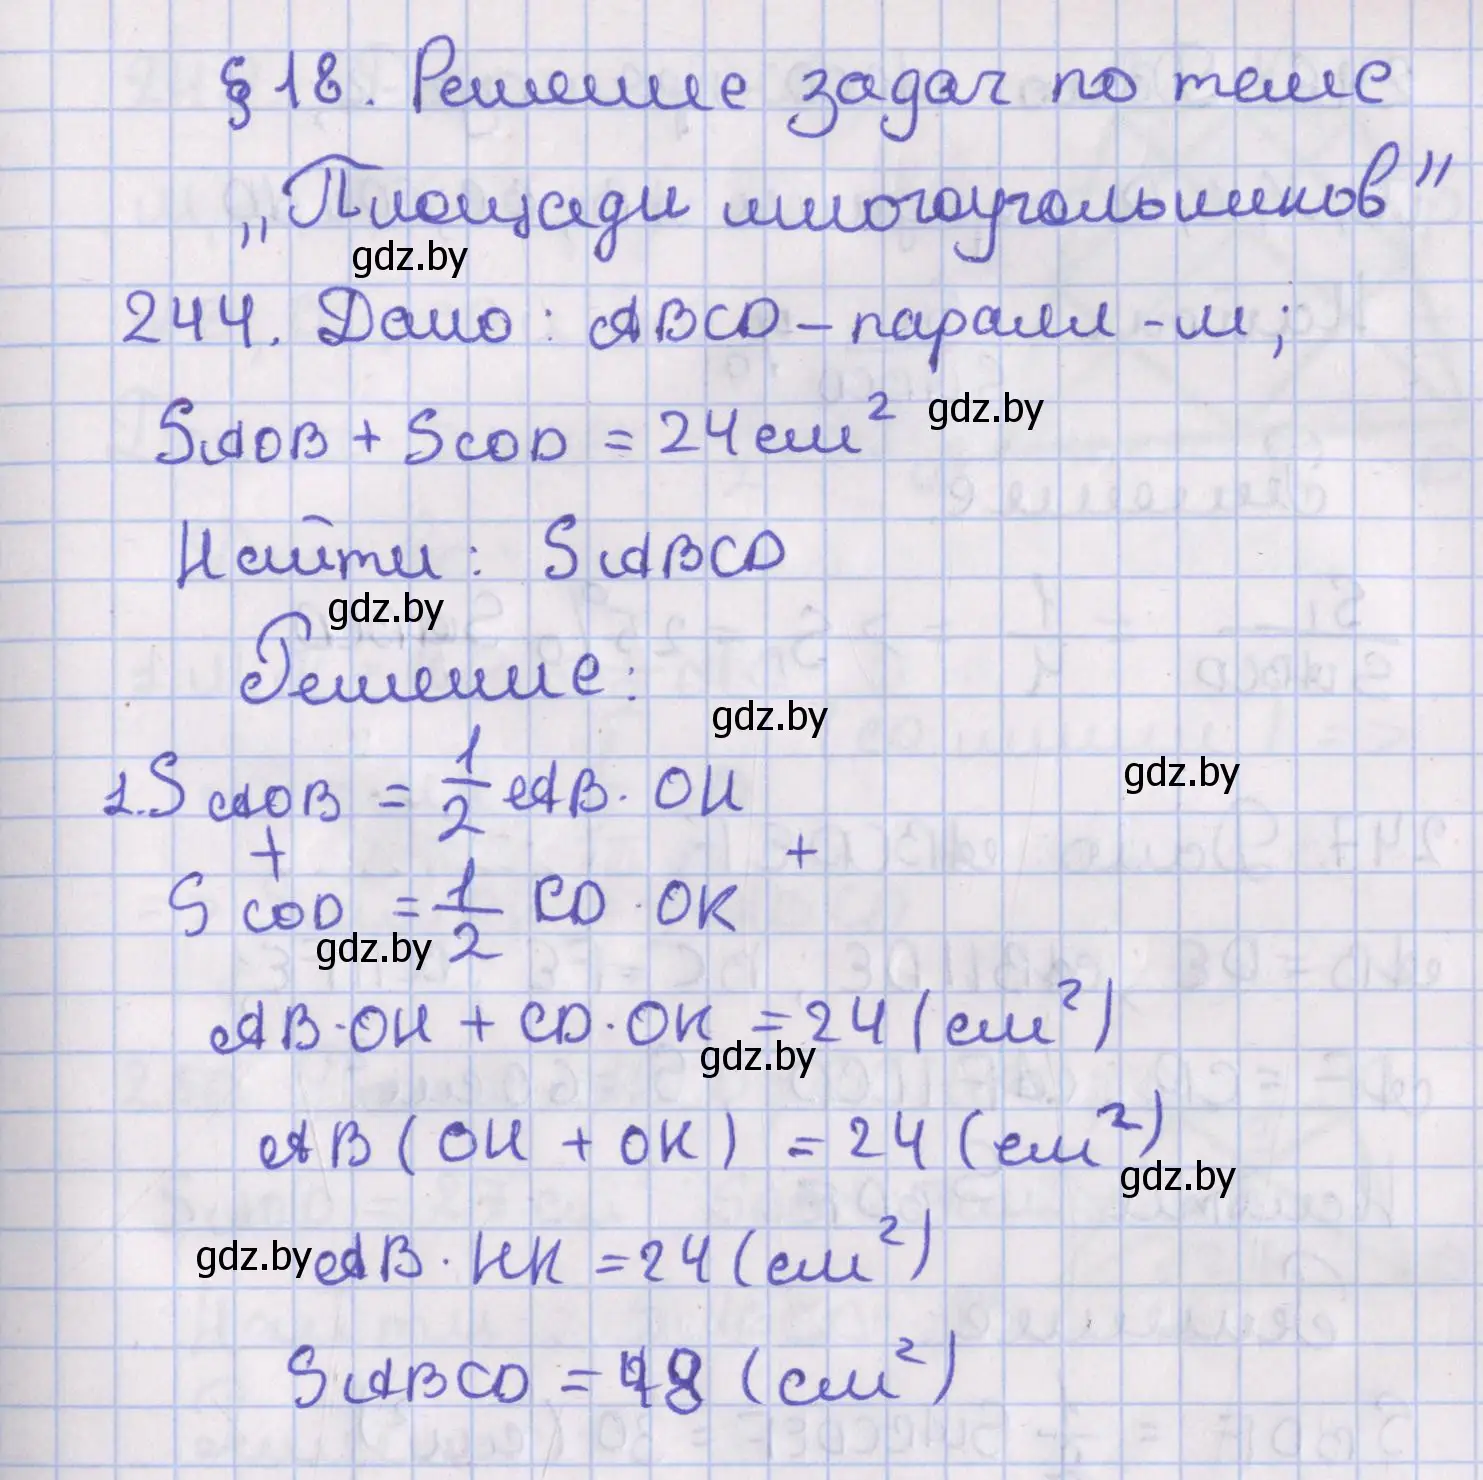 § 18. Решение задач по теме
„Площади многоугольников"
gdz.by
244. Дано: ABCD – паралл-м;
SAOB + SCOD = 24 см² gdz.by
Найти: SABCD
gdz.by
Решение:
gdz.by
gdz.by
1. SAOB = 1/2 AB · OH
+ +
SCOD = 1/2 CD · OK
gdz.by
AB · OH + CD · OK = 24 (см²)
gdz.by
AB (OH + OK) = 24 (см²)
gdz.by
gdz.by AB · HK = 24 (см²)
SABCD = 48 (см²)